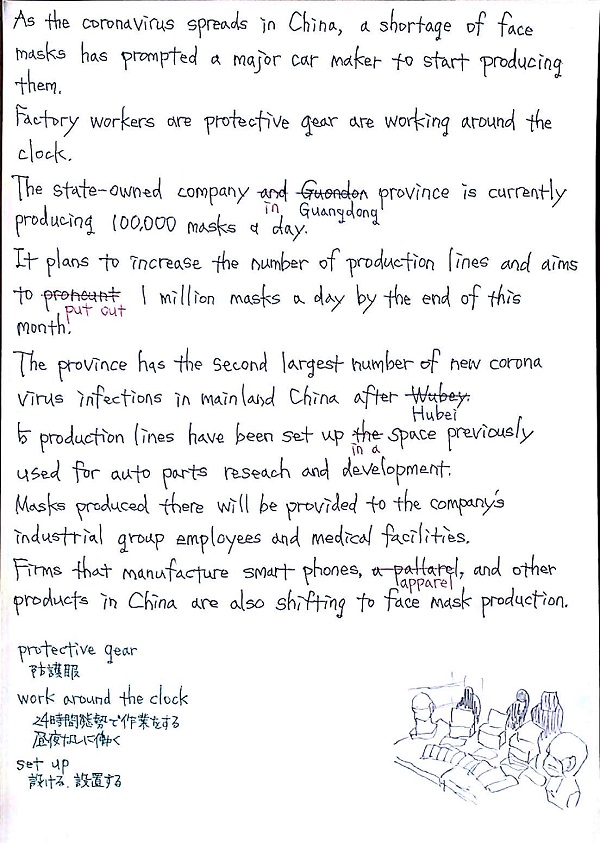 As the coronavirus spreads in China, a shortage of face
masks has prompted a major car maker to start producing
them.
Factory workers are protective gear are working around the
clock.
The state-owned company and Guondon province is currently
in Guangdong
producing 100,000 masks a day.
It plans to increase the number of production lines and aims
to pronount 1 million masks a day by the end of this
put out
month.
The province has the second largest number of new corona
virus infections in mainland China after Wubey.
Hubei
5 production lines have been set up the space previously
in a
used for auto parts reseach and development.
Masks produced there will be provided to the company's
industrial group employees and medical facilities.
Firms that manufacture smart phones, a pattarel, and other
apparel
products in China are also shifting to face mask production.
protective gear
防護服
work around the clock
24時間態勢で作業をする
昼夜なしに働く
set up
設ける、設置する